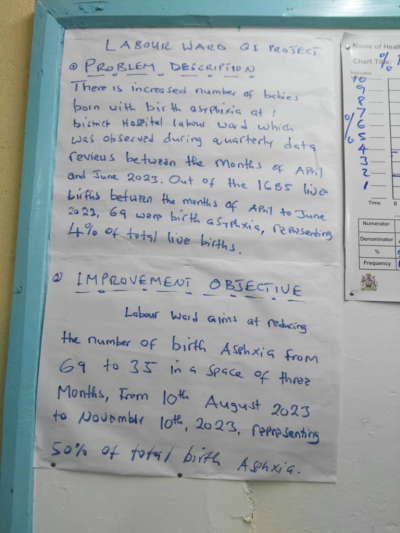 LABOUR WARD QI PROJECT
① PROBLEM DESCRIPTION
There is increased number of babies
born with birth asphixia at
District Hospital Labour ward which
was observed during quarterly data
reviews between the months of April
and June 2023. Out of the 1685 live
births between the months of April to June
2023, 69 were birth asphyxia, representing
4% of total live births.
② IMPROVEMENT OBJECTIVE
Labour Ward aims at reducing
the number of birth Asphxia from
69 to 35 in a space of three
Months, From 10th August 2023
to November 10th, 2023, representing
50% of total birth Asphxia.
Name of Heal
Chart Title: %
10
9
8
7
% 6
5
4
3
2
1
Time 0
Numerator
Denominator
%
Frequency